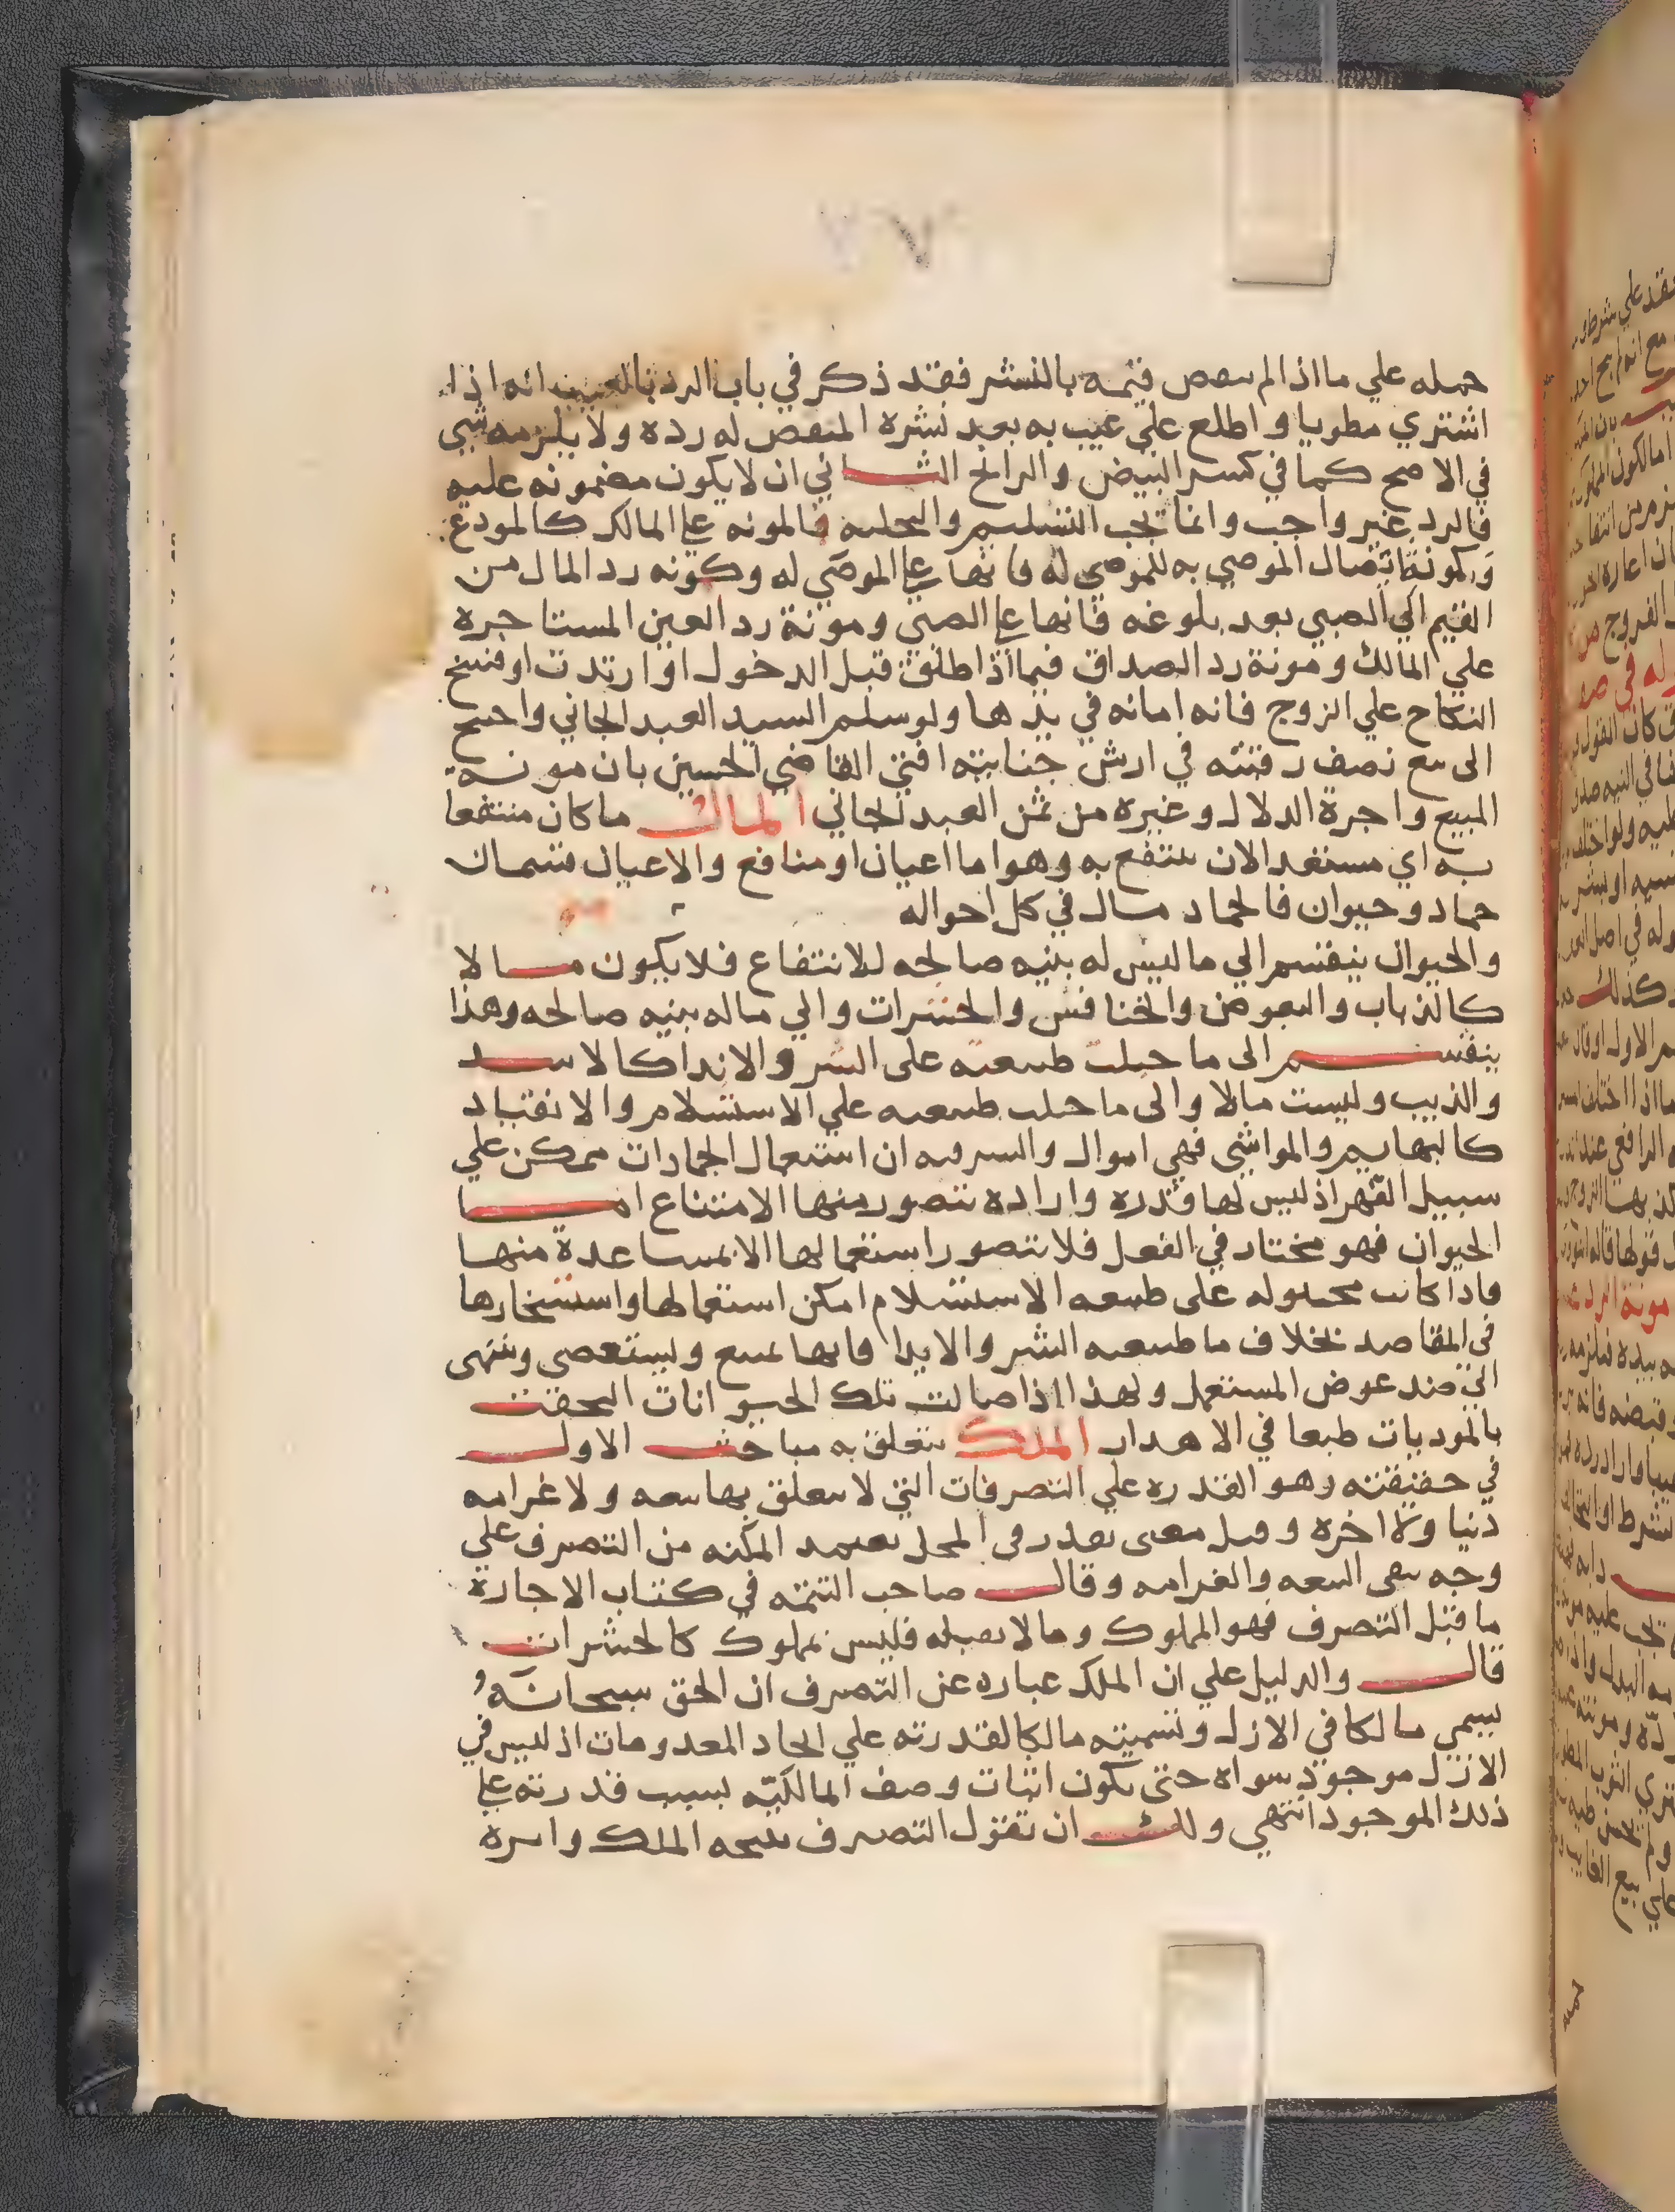 حمله علي ما اذا لم ينقص قيمه بالنشر فقد ذكر في باب الرد بالعيب انه اذا
اشتري مطويا واطلع علي عيب به بعد نشره المنقص له رده ولا يلزمه شي
في الاصح كما في كسر البيض والرانج الثاني ان لا يكون مضمونه عليه
فالرد غير واجب وانما تجب التسليم والتخليه فالمونه علي المالك كالمودع
وكمونة ايصال الموصي به للموصي له فانها علي الموصي له وكمونه رد المال من
القيم الي الصبي بعد بلوغه فانها علي الصبي ومونة رد العين المستاجره
علي المالك ومونة رد الصداق فيما اذا طلق قبل الدخول او ارتدت او فسخ
النكاح علي الزوج فانه امانه في يدها ولو سلم السيد العبد الجاني واحتيج
الى بيع نصف رقبته في ارش جنايته افتي القاضي الحسين بان مونة
المبيع واجرة الدلال وغيره من ثمن العبد الجاني المال ما كان منتفعا
به اي مستعد الان ينتفع به وهو اما اعيان او منافع والاعيان قسمان
جماد وحيوان فالجماد مال في كل احواله
والحيوان ينقسم الي ما ليس له بنيه صالحه للانتفاع فلا يكون مالا
كالذباب والبعوض والخنافس والحشرات والي ما له بنيه صالحه وهذا
ينقسم الى ما جبلت طبيعته على الشر والايذا كالاسد
والذيب وليست مالا والى ما جبلت طبيعته علي الاستسلام والانقياد
كالبهايم والمواشي فهي اموال والسر فيه ان استعمال الجمادات ممكن علي
سبيل القهر اذ ليس لها قدره واراده يتصور منها الامتناع اما
الحيوان فهو مختار في الفعل فلا يتصور استعمالها الا بمساعدة منها
فاذا كانت مجبوله على طبيعه الاستسلام امكن استعمالها واستسخارها
في المقاصد بخلاف ما طبيعته الشر والايذا فانها تمتنع وتستعصي وتنتهي
الي ضد غرض المستعمل ولهذا اذا صالت تلك الحيوانات التحقت
بالموذيات طبعا في الاهدار الملك يتعلق به مباحث الاول
في حقيقته وهو القدره علي التصرفات التي لا يتعلق بها تبعه ولا غرامه
دنيا ولا اخره وقيل معنى يقدر في المحل يعتمد المكنه من التصرف علي
وجه ينفي التبعه والغرامه وقال صاحب التتمه في كتاب الاجارة
ما قبل التصرف فهو المملوك وما لا يقبله فليس بمملوك كالحشرات
قال والدليل علي ان الملك عباره عن التصرف ان الحق سبحانه
يسمي مالكا في الازل وتسميته مالكا لقدرته علي ايجاد المعدومات اذ ليس في
الازل موجود سواه حتى يكون اثبات وصف المالكيه بسبب قدرته علي
ذلك الموجود انتهي ولك ان تقول التصرف نتيجه الملك واثره